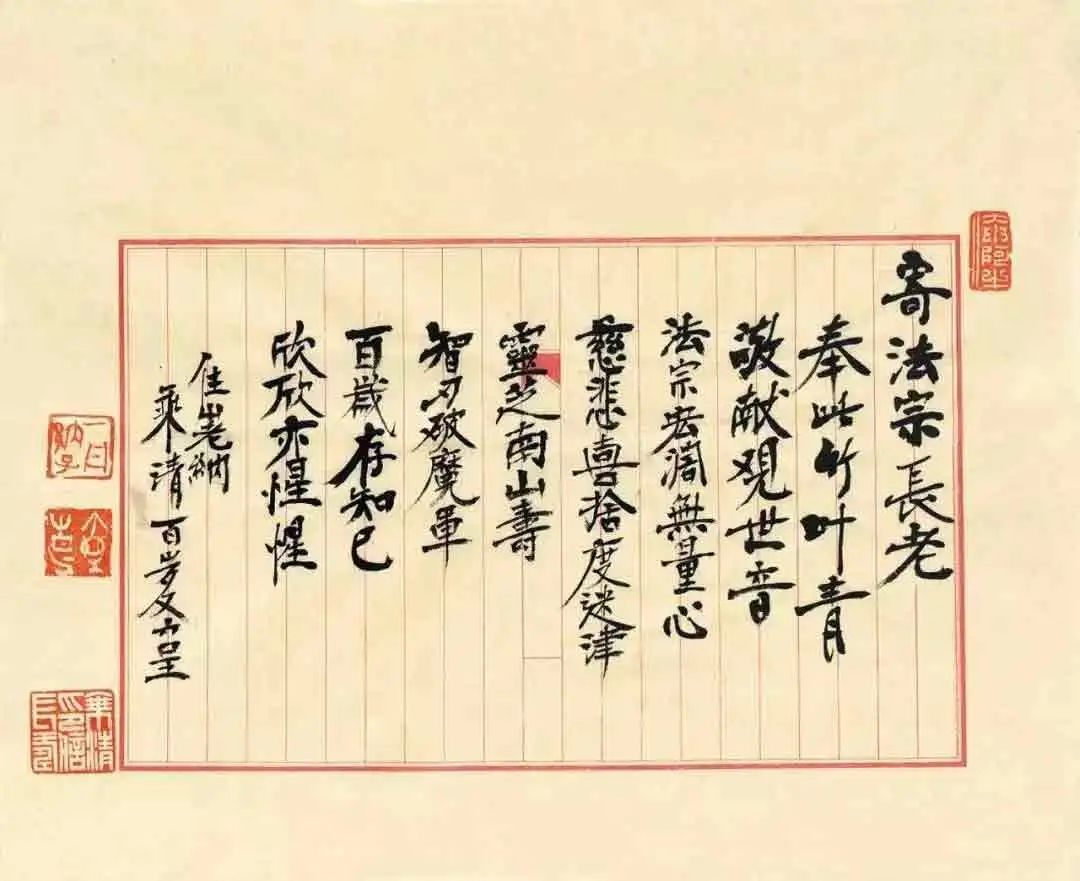 寄法宗長老
奉此竹叶青
敬献覌世音
法宗宏無量心
慈悲喜捨度迷津
靈芝南山壽
智刃破魔軍
百歲存知己
欣欣亦惺惺
住山老衲
乘清百岁呈